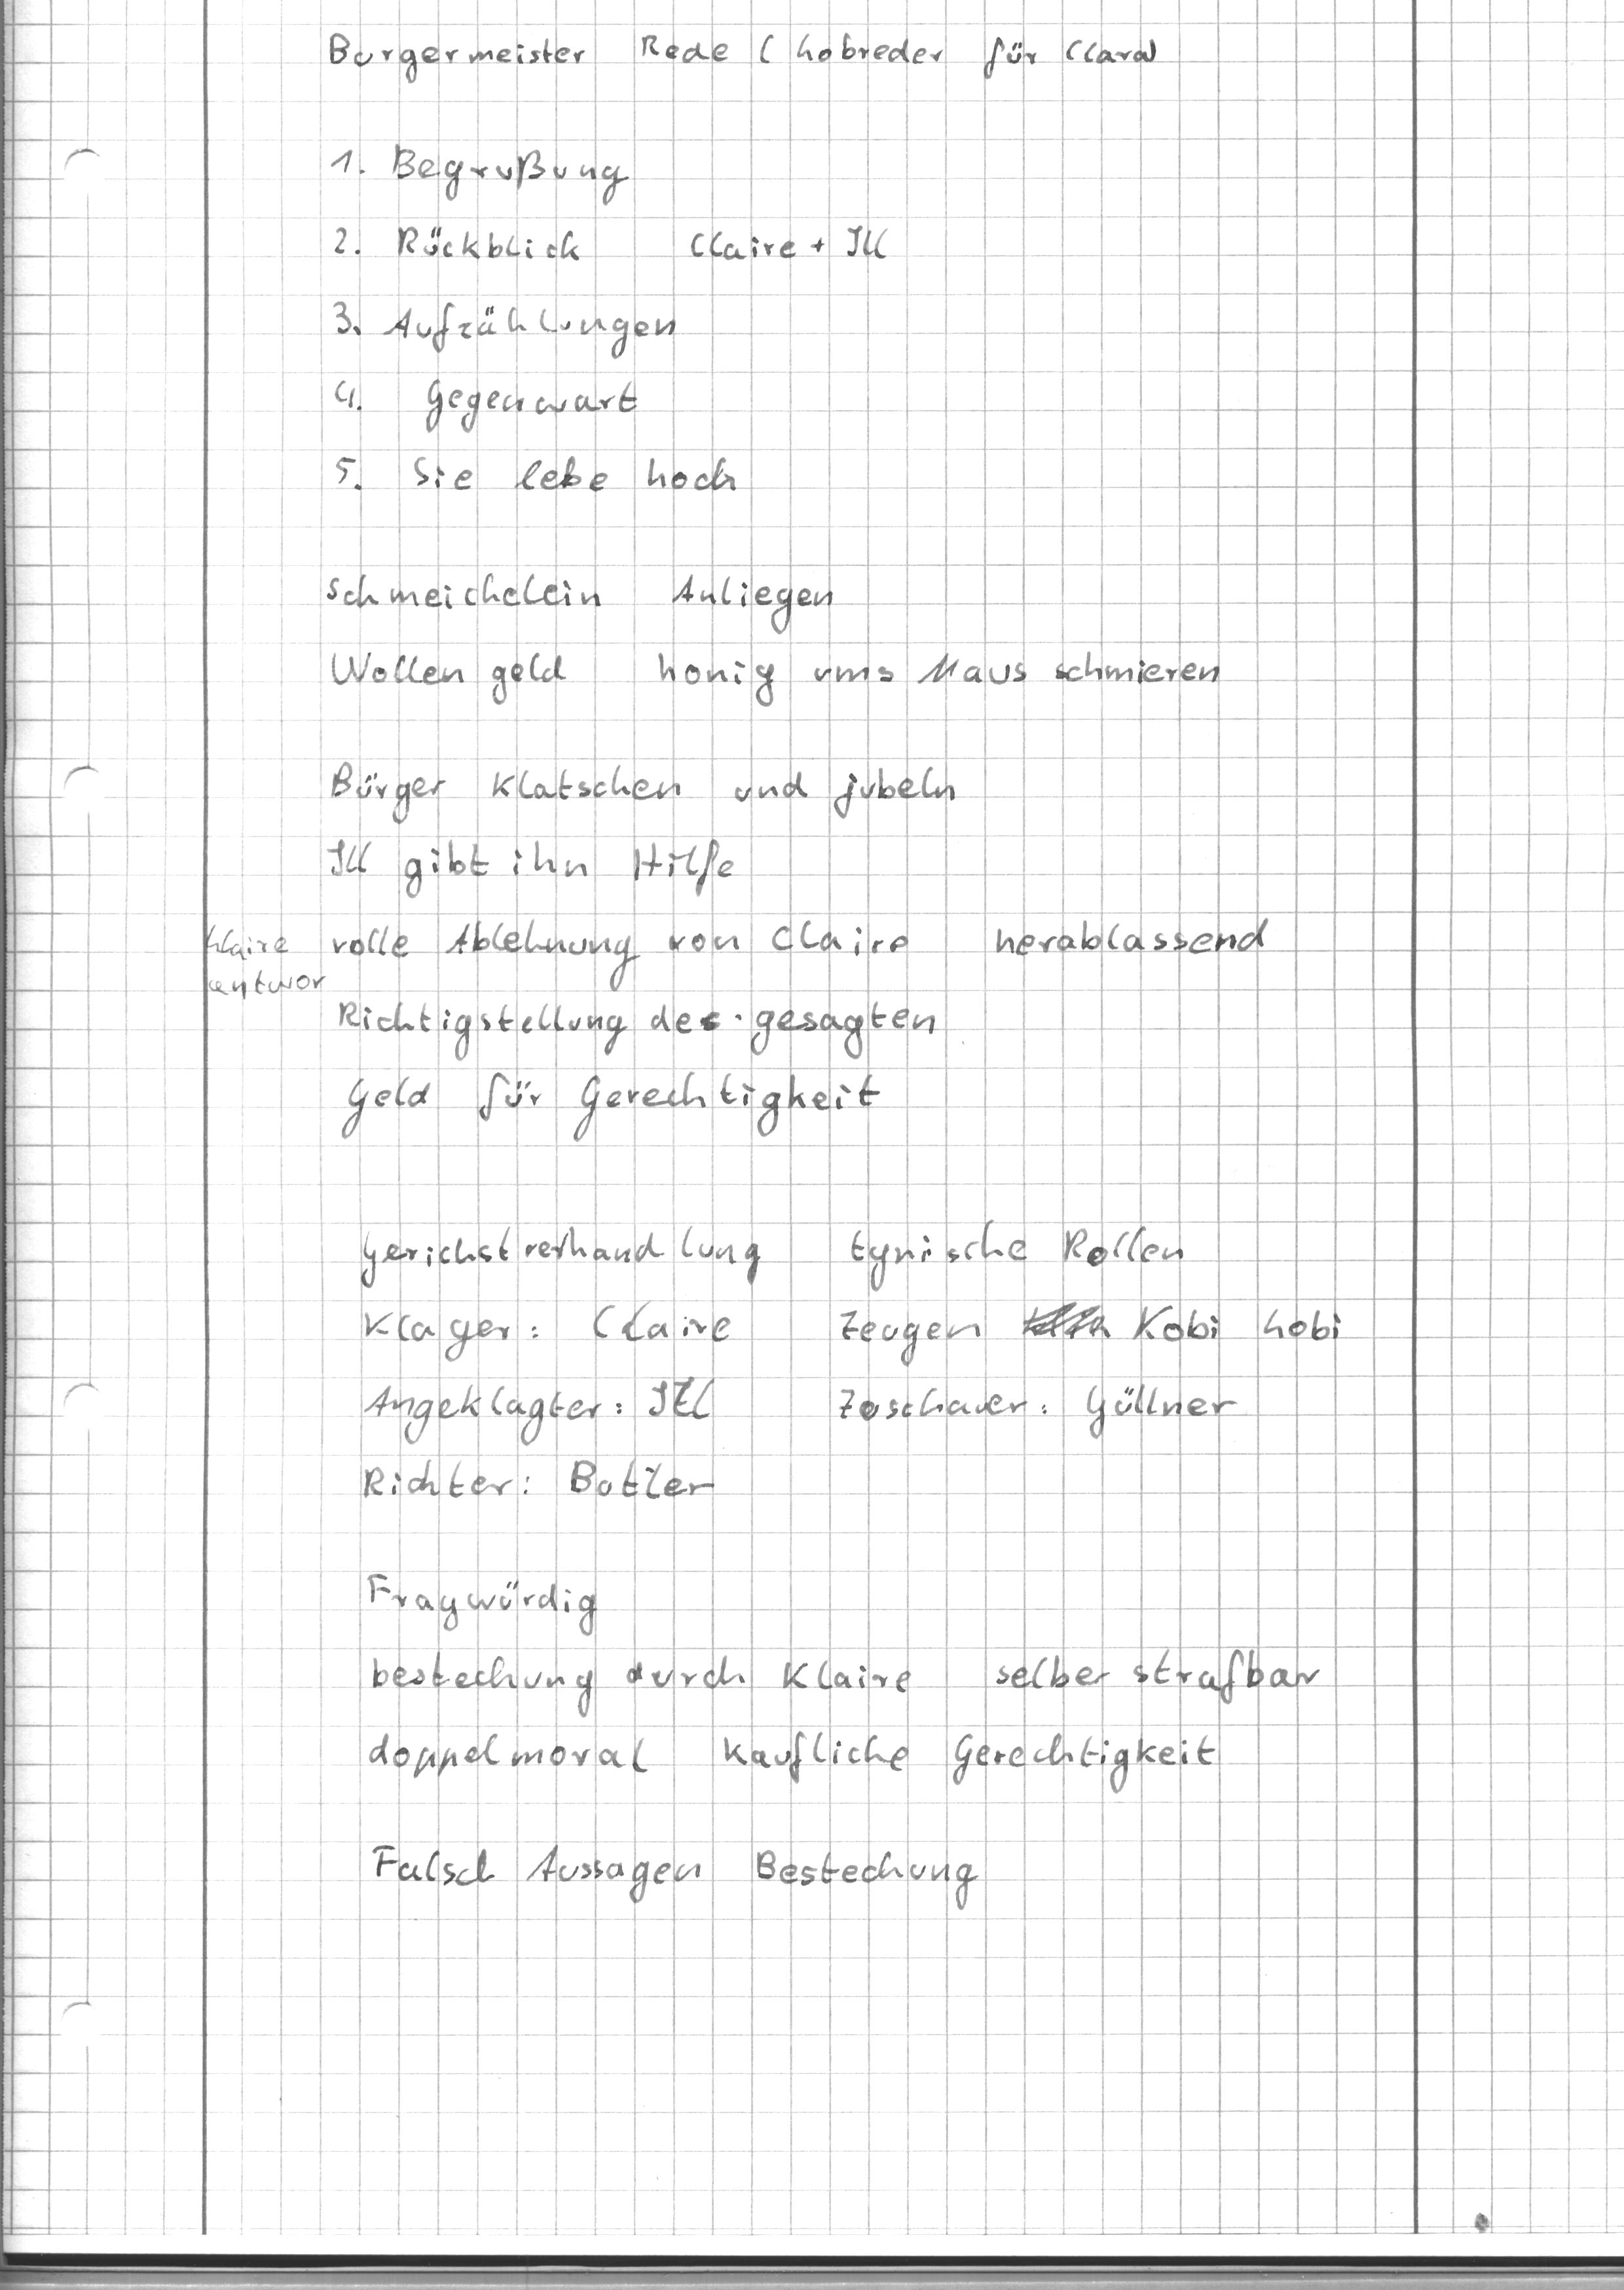 Burgermeister Rede ( hobreder für Clara)
1. Begrußung
2. Rückblick Claire + Ill
3. Aufzählungen
4. Gegenwart
5. Sie lebe hoch
Schmeichelein Anliegen
Wollen geld honig ums Maus schmieren
Bürger Klatschen und jubeln
Ill gibt ihn Hilfe
Klaire volle Ablehnung von Claire herablassend
antwor
Richtigstellung des gesagten
Geld für Gerechtigkeit
Gerichstverhandlung typische Rollen
Klager: Claire Zeugen Kobi hobi
Angeklagter: Ill Zuschauer: Güllner
Richter: Butler
Fragwürdig
bestechung durch Klaire selber strafbar
doppelmoral Kaufliche Gerechtigkeit
Falsch Aussagen Bestechung